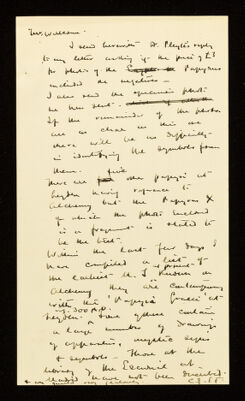 Mr. Wellcome.
I send herewith Dr. Pleyte's reply
to my letter asking if the price of £3
for photos of the Papyrus
included the negatives —
I also send the specimen photo
he has sent.
If the remainder of the photos
are as clear as this one
there will be no difficulty
in identifying the symbols from
them.
There are five other papyri at
Leyden having reference to
Alchemy but the Papyrus X
of which the photo enclosed
is a fragment is stated to
be the best.
Within the last few days I
have compiled a list of
the earliest M.S. known on
Alchemy they are contemporary
with the "Papyri Graeci" at
Leyden. Some of these contain
a large number of Drawings
of apparatus, mystic signs
& symbols — Those at the
library of the Escurial at
Madrid have not been